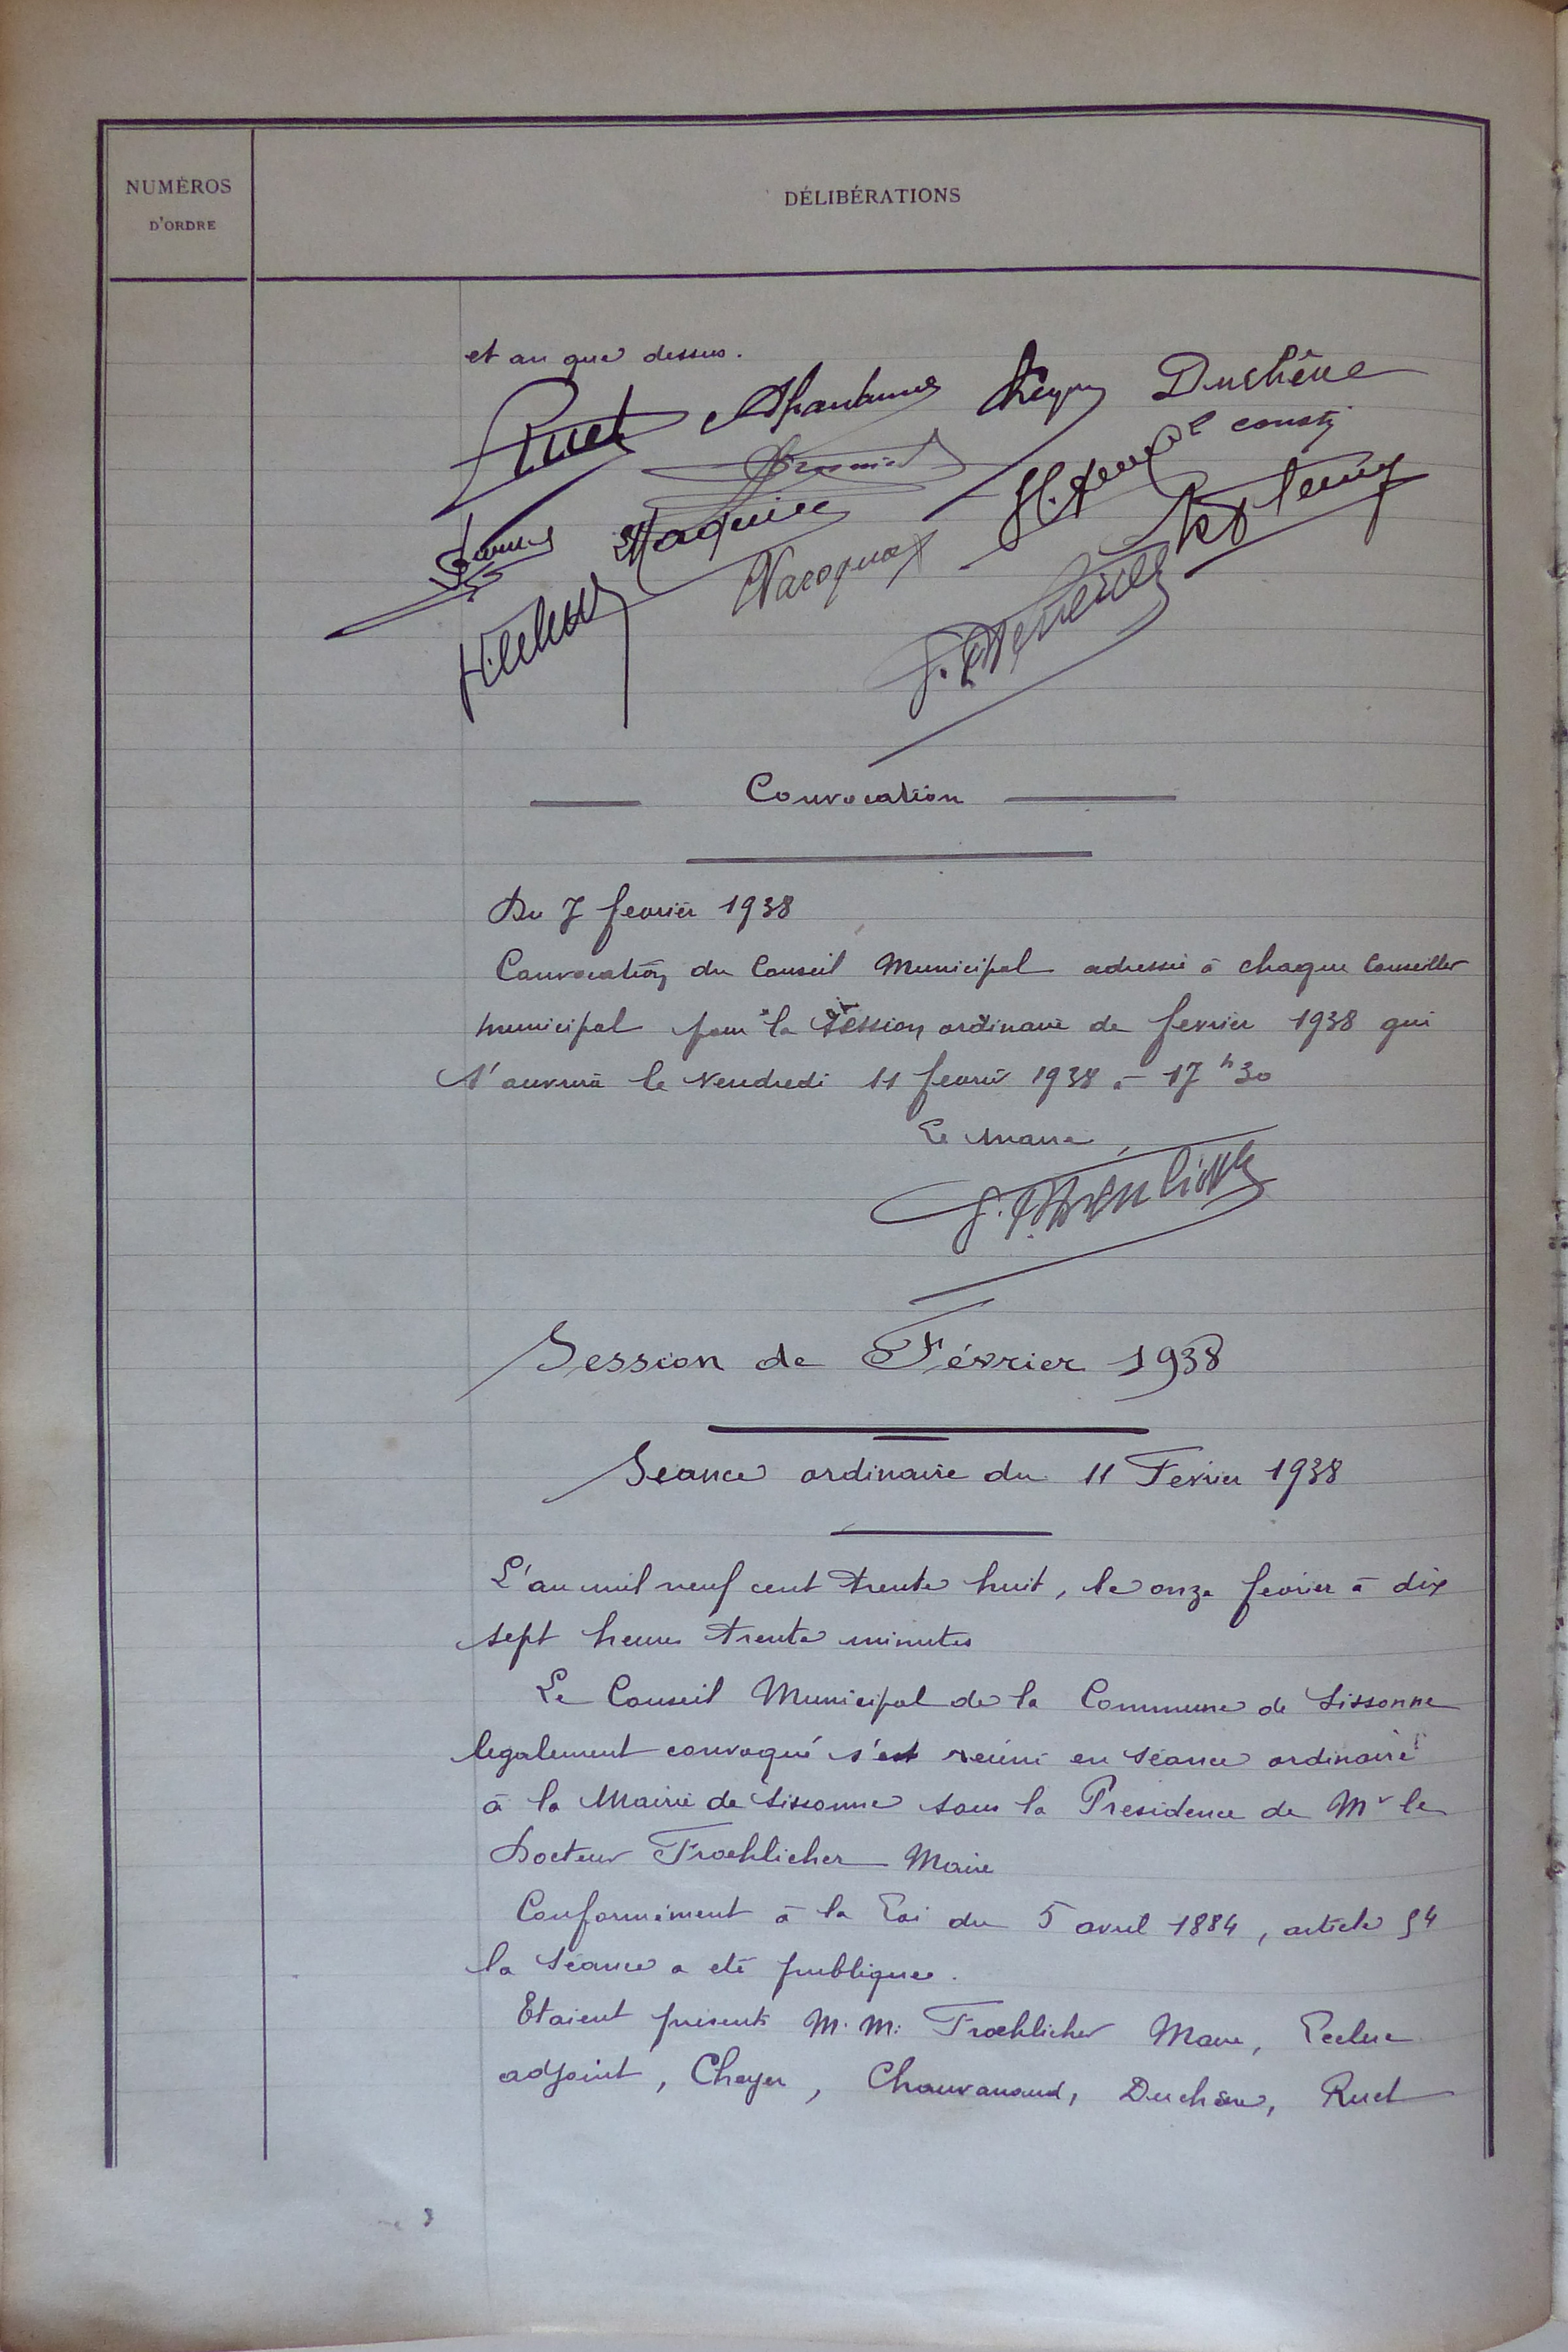 NUMÉROS
D'ORDRE
DÉLIBÉRATIONS
et an que dessus.
Ruet Duchêne
Maquin
Vacquax
Convocation
Du 7 fevrier 1938
Convocation du Conseil Municipal adressée à chaque Conseiller
municipal pour la session ordinaire de fevrier 1938 qui
s'ouvrira le Vendredi 11 fevrier 1938 à 17 h 30
Le Maire
Session de Février 1938
Seance ordinaire du 11 Fevrier 1938
L'an mil neuf cent trente huit, le onze fevrier à dix
sept heures trente minutes
Le Conseil Municipal de la Commune de Sissonne
legalement convoqué s'est reuni en séance ordinaire
à la Mairie de Sissonne sous la Presidence de Mr le
Docteur Froehlicher Maire
Conformément à la Loi du 5 avril 1884, article 54
la séance a eté publique.
Etaient présents M.M: Froehlicher Maire,
adjoint, Cheyer, Chauvanaud, Duchêne, Ruet